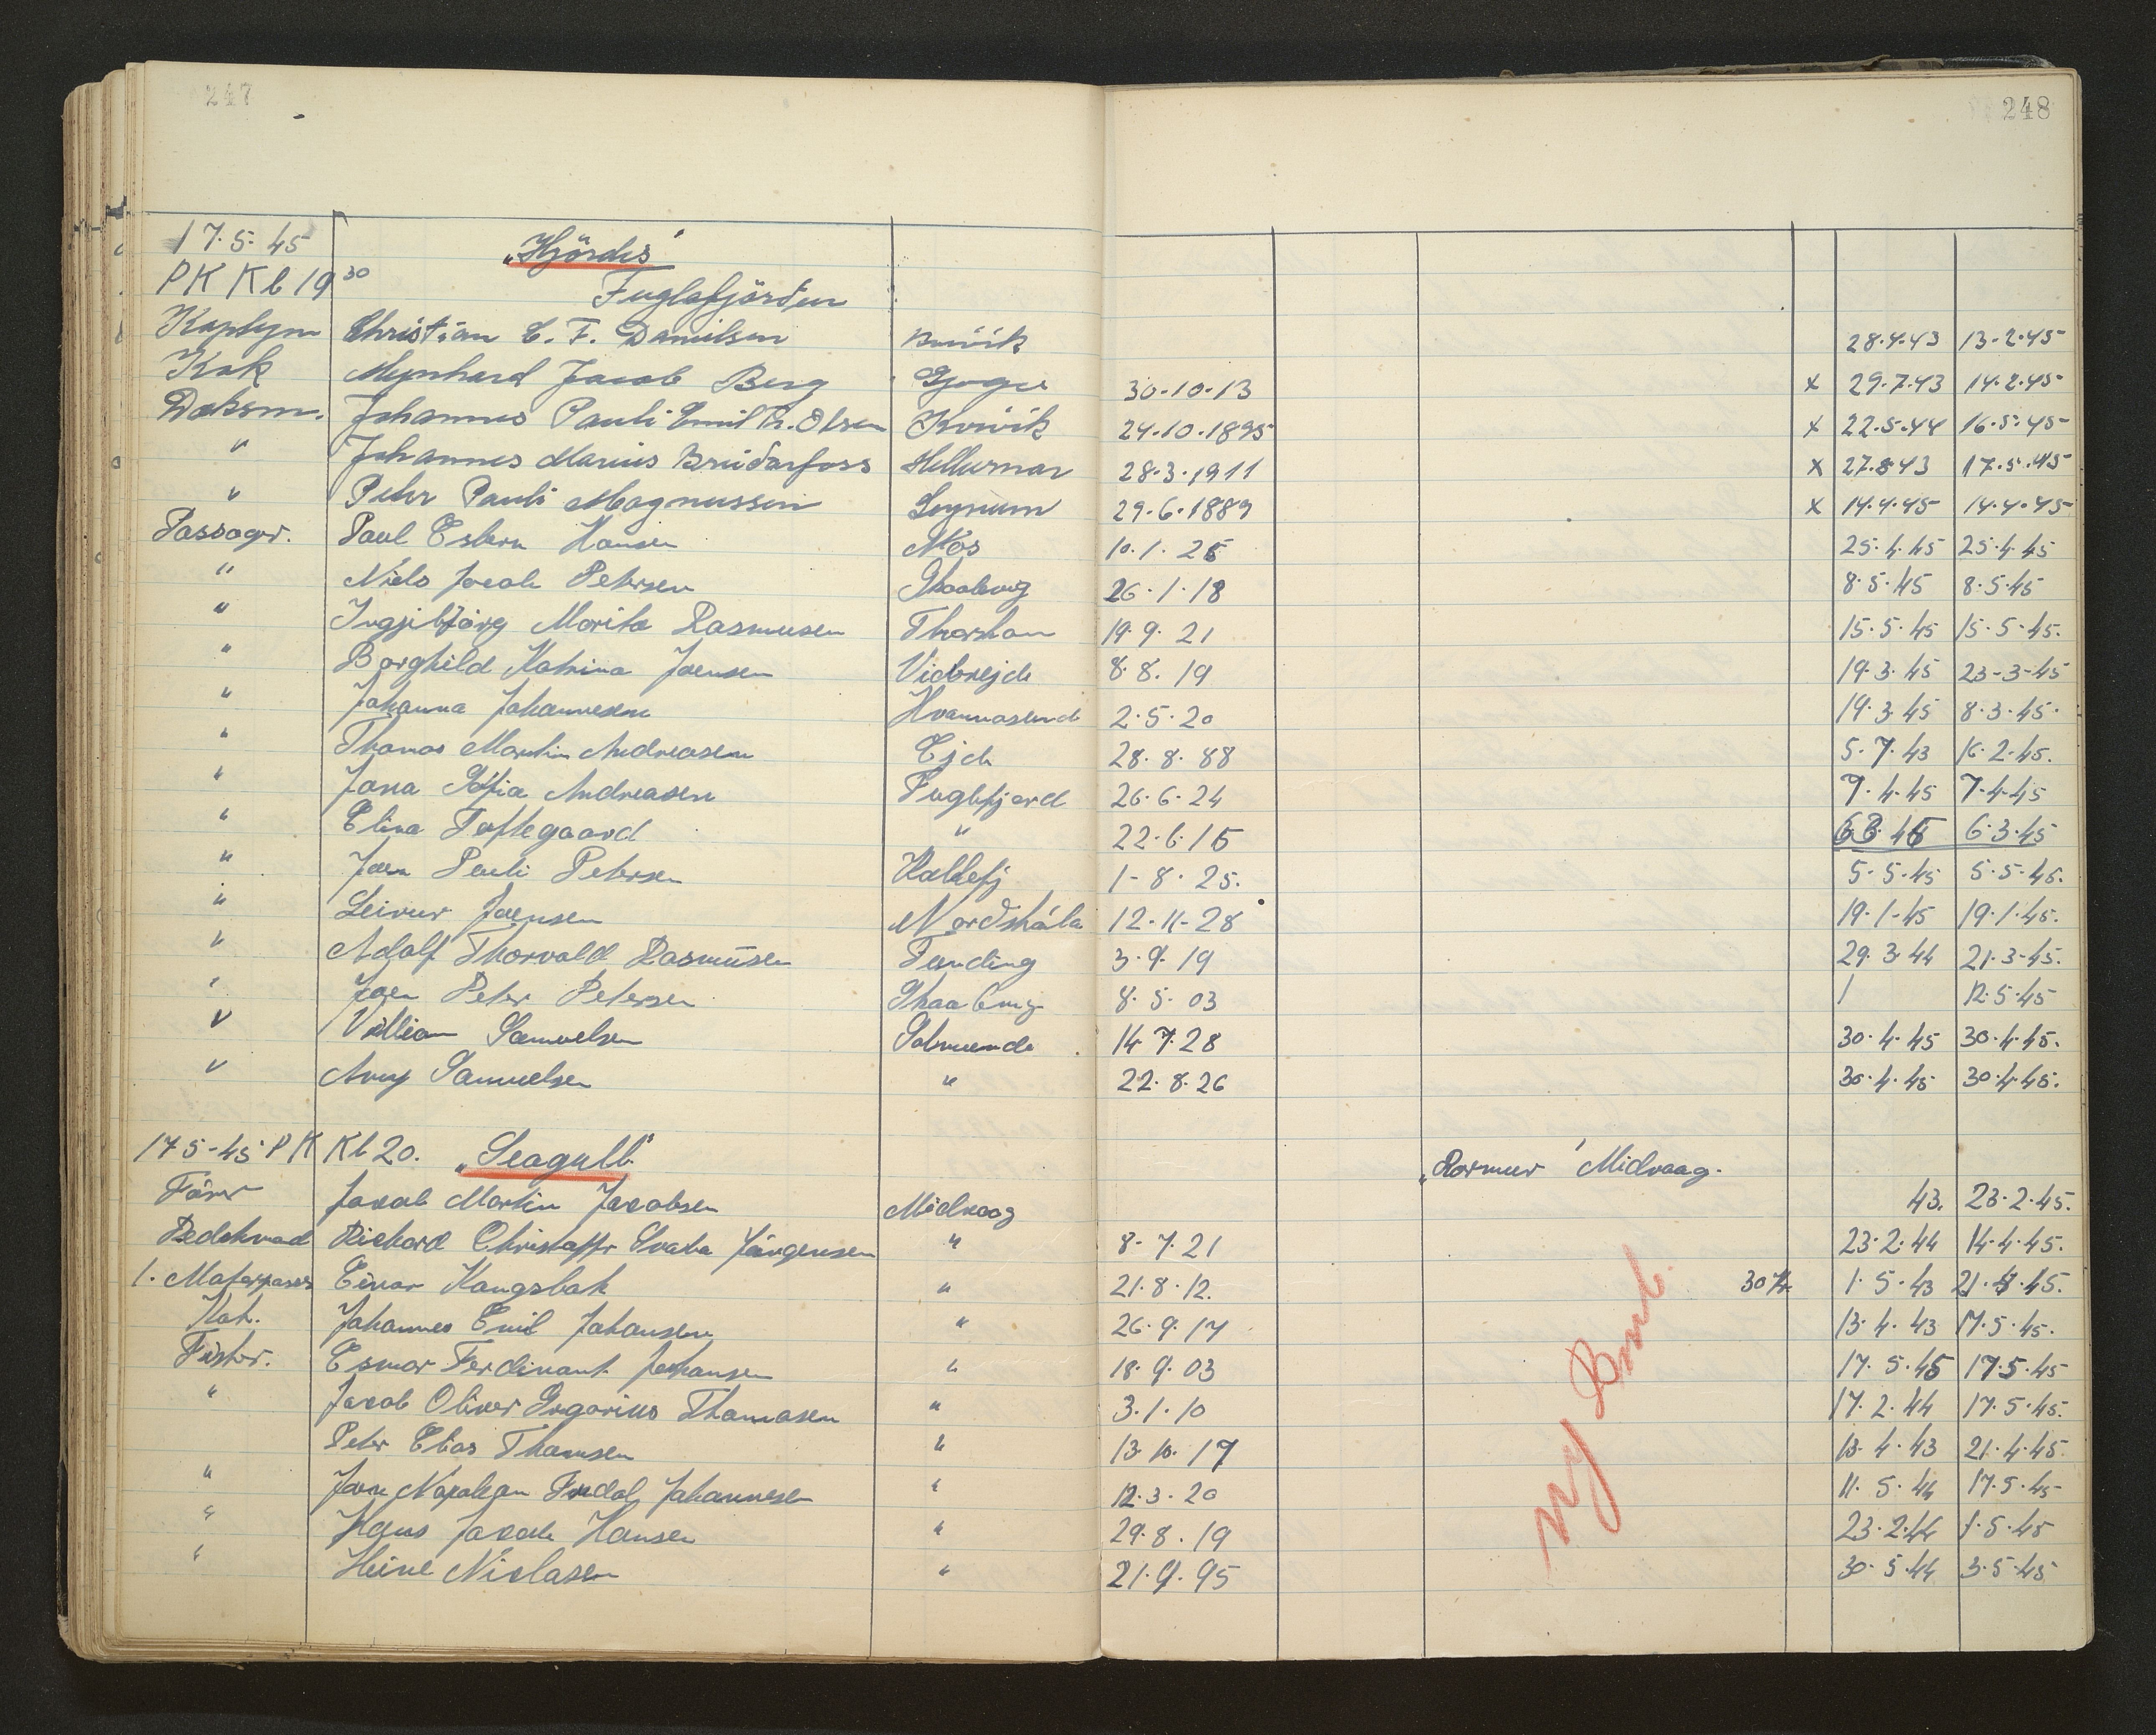 247
248
17.5.45 „Hjördis"
PK Kl 19 30 Fuglafjörður
Christian E. F. Danielsen Kvívík 28.4.43 13.2.45
Kok Mynhard Jacob Berg Gjogv 30.10.13 x 29.7.43 14.2.45
Deksm. Johannes Pauli Emil R. Olsen Kvívík 24.10.1895 x 22.5.44 16.5.45
" Johannes Marius Breiðarfoss Hellurnar 28.3.1911 x 27.8.43 17.5.45
" Peter Pauli Magnussen Leynum 29.6.1889 x 14.4.45 14.4.45
Passager. Poul Esbern Hansen Næs 10.1.25 25.4.45 25.4.45
" Niels Jacob Petersen 26.1.18 8.5.45 8.5.45
" Ingjibjörg Marita Rasmusen Thorshavn 19.9.21 15.5.45 15.5.45.
" Borghild Katrina Joensen Viderejde 8.8.19 19.3.45 23-3-45
" Johanna Johannesen Hvannasund 2.5.20 19.3.45 8.3.45.
" Thomas Martin Andreasen Ejde 28.8.88 5.7.43 16.2.45.
" Jona Sofia Andreasen Fuglefjord 26.6.24 7.4.45 7-4-45
" Elina Toftegaard " 22.6.15 6.3.45 6.3.45
" Joen Pauli Petersen Kollefj 1-8.25. 5-5-45 5.5.45.
" Leivur Joensen Norðskála 12-11-28 19.1-45 19.1.45.
" Adolf Thorvald Rasmusen Funding 3.9.19 29.3.44 21.3-45.
" Joen Peter Petersen 8.5.03 / 12.5.45
" Villiam Samuelsen 14.7.28 30.4.45 30.4.45.
" Samuelsen " 22.8.26 30.4.45 30.4.45.
17 5-45 PK Kl 20. „Seagull" „Rormur" Midvaag.
Förer Jacob Martin Jacobsen Midvaag 43. 23.2.45.
Bedstmand Richard Christoffer Svabo Jörgensen " 8.7.21 23.2.44 14.4.45.
1. Motorpasser Einar Kangsbak " 21.8.12. 30 1.5.43 21.4.45.
Kok. Johannes Emil Johansen " 26.9.17 13.4.43 17.5.45.
Fisker. Esmar Ferdinant Johansen " 18.9.03 17.5.45 17.5.45
" Jacob Oliver Gregorius Thomasen " 3.1.10 17.2.44 17.5.45.
Peter Elias Thomsen " 13.10.17 13.4.43 21.4.45.
" Joen Napoleon Johannesen " 12.3.20 11.5.44 17.5.45
" Hans Jacob Hansen " 29.8.19 23.2.44 1.5.45
" Heine Niclasen " 21.9.95 30.5.44 3.5.45
ny